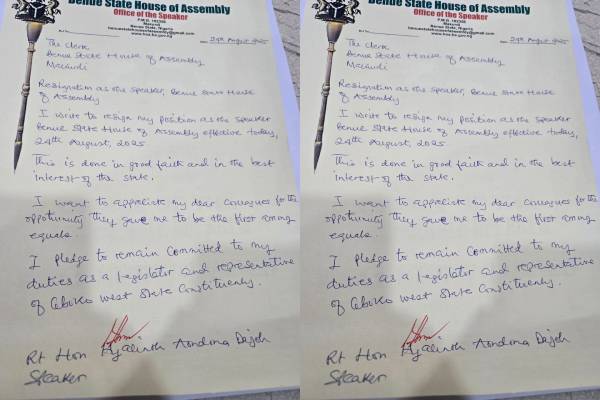 Benue State House of Assembly
Office of the Speaker
P.M.B. 102398
Makurdi
Benue State, Nigeria
24th August 2025
The Clerk
Benue State House of Assembly
Makurdi
Resignation as the Speaker, Benue State House
of Assembly
I write to resign my position as the Speaker
Benue State House of Assembly effective today,
24th August, 2025
This is done in good faith and in the best
interest of the state.
I want to appreciate my dear colleagues for the
opportunity they gave me to be the first among
equals.
I pledge to remain committed to my
duties as a legislator and representative
of Gboko West State Constituency.
Rt Hon Hyacinth Aondona Dajoh
Speaker
Benue State House of Assembly
Office of the Speaker
P.M.B. 102398
Makurdi
Benue State, Nigeria
24th August 2025
The Clerk
Benue State House of Assembly
Makurdi
Resignation as the Speaker, Benue State House
of Assembly
I write to resign my position as the Speaker
Benue State House of Assembly effective today,
24th August, 2025
This is done in good faith and in the best
interest of the state.
I want to appreciate my dear colleagues for the
opportunity they gave me to be the first among
equals.
I pledge to remain committed to my
duties as a legislator and representative
of Gboko West State Constituency.
Rt Hon Hyacinth Aondona Dajoh
Speaker